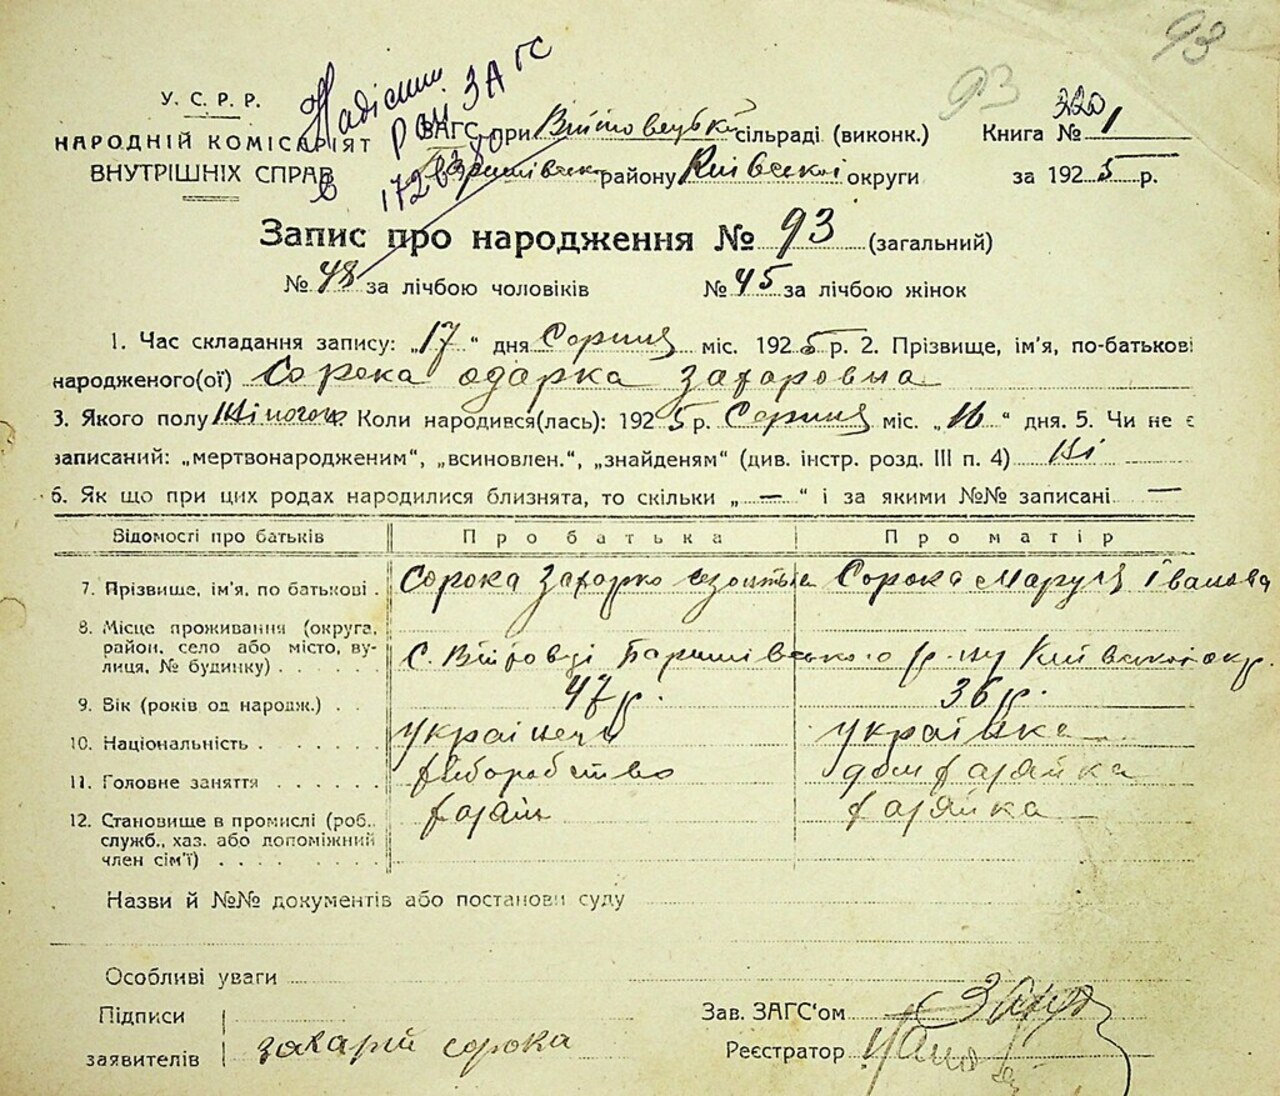 93
93
320
У. С. Р. Р.
НАРОДНІЙ КОМІСАРІЯТ
ВНУТРІШНІХ СПРАВ
Надіслин.
Рай ЗАГС
в
ЗАГС при Війтовецькій сільраді (виконк.)
Баришівськ. району Київської округи
Книга № 1
за 1925 р.
Запис про народження № 93 (загальний)
№ 48 за лічбою чоловіків № 45 за лічбою жінок
1. Час складання запису: „17“ дня Серпня міс. 1925 р. 2. Прізвище, ім'я, по-батькові
народженого(ої) Сорока Одарка Захаровна
3. Якого полу Жіночого 4. Коли народився(лась): 1925 р. Серпня міс. „16“ дня. 5. Чи не є
записаний: „мертвонародженим“, „всиновлен.“, „знайденям“ (див. інстр. розд. III п. 4) Ні
6. Як що при цих родах народилися близнята, то скільки „—“ і за якими №№ записані —
Відомості про батьків Про батька Про матір
7. Прізвище, ім'я, по батькові . Сорока Захарко Сорока Маруся Іванова
8. Місце проживання (округа, район, село або місто, вулиця, № будинку) . . . . С. Війтовці Баришівського р-ну Київської окр.
9. Вік (років од народж.) . . 47 р. 36 р.
10. Національність . . . . . . українець українка
11. Головне заняття . . . . . . хліборобство дом хазяйка
12. Становище в промислі (роб., служб., хаз. або допоміжний член сім'ї) . . . . . . . хазяїн хазяйка
Назви й №№ документів або постанови суду
Особливі уваги
Підписи
заявителів захарій сорока
Зав. ЗАГС'ом
Реєстратор